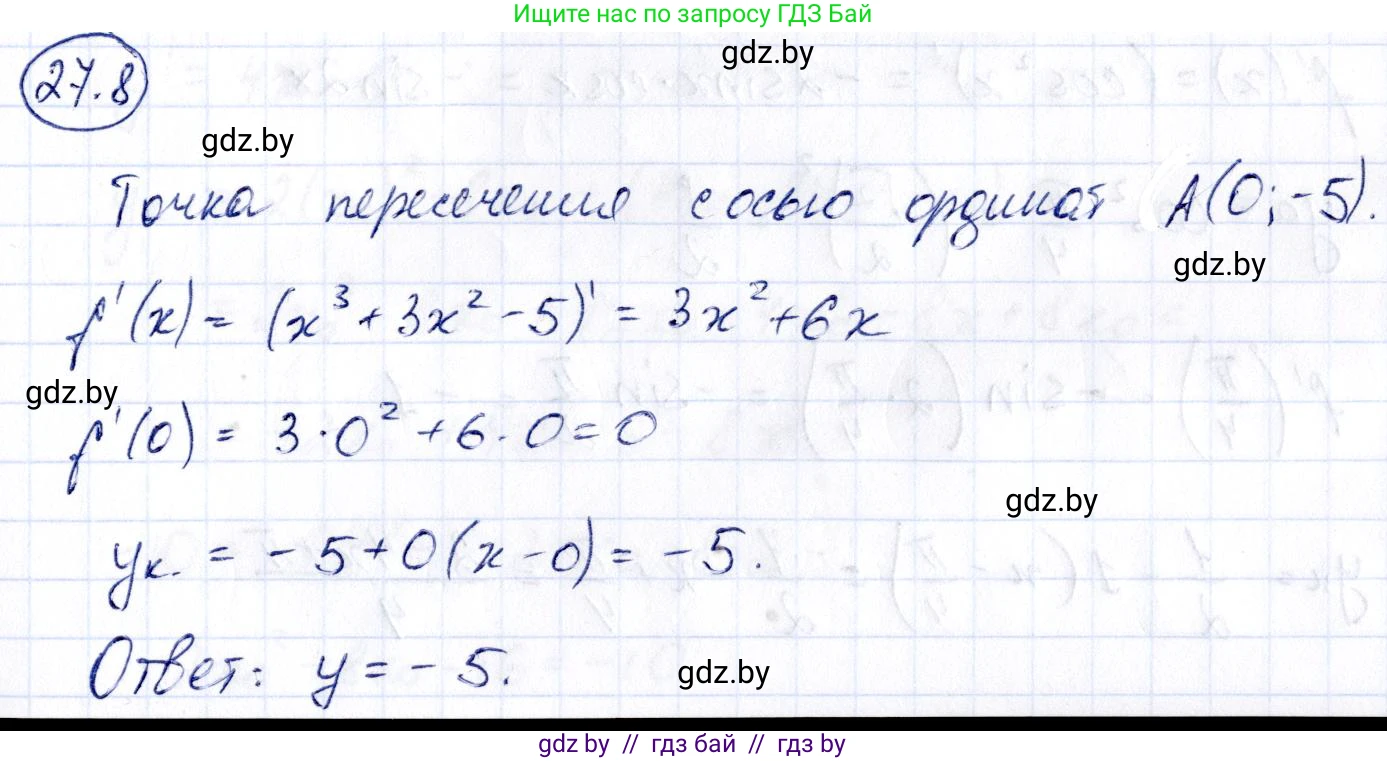 Ищите нас по запросу ГДЗ Бай
gdz.by
27.8
gdz.by
Точка пересечения с осью ординат A(0; -5).
gdz.by
f'(x) = (x³ + 3x² - 5)' = 3x² + 6x
gdz.by
f'(0) = 3 · 0² + 6 · 0 = 0
gdz.by
yк. = - 5 + 0(x - 0) = - 5.
Ответ: y = - 5.
gdz.by
gdz by // гдз бай // гдз by